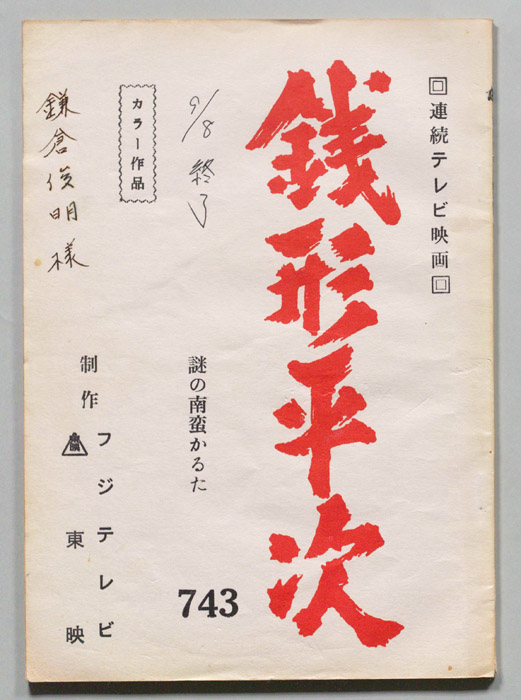 連続テレビ映画
銭形平次
謎の南蛮かるた
743
9/8 終了
カラー作品
鎌倉俊明様
制作
フジテレビ
東映